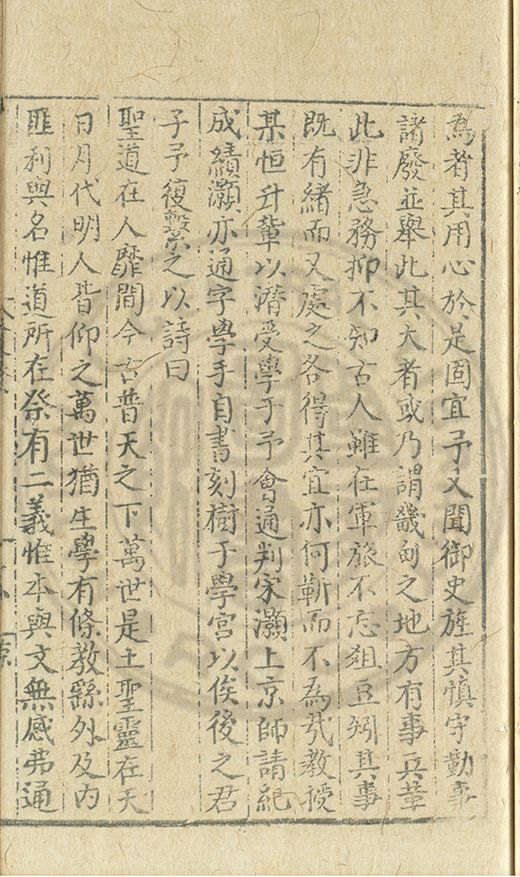 為者其用心於是固宜予又聞御史旌其慎守勤事
諸廢並舉此其大者或乃謂畿甸之地方有事兵革
此非急務抑不知古人雖在軍旅不忘俎豆矧其事
既有緒而又處之各得其宜亦何靳而不為哉教授
某恒升輩以濳受學于予會通判宋灝上京師請紀
成績灝亦通字學手自書刻樹于學宮以俟後之君
子予復繫之以詩曰
聖道在人靡間今古普天之下萬世是土聖靈在天
日月代明人皆仰之萬世猶生學有條教繇外及內
匪利與名惟道所在祭有二義惟本與文無感弗通